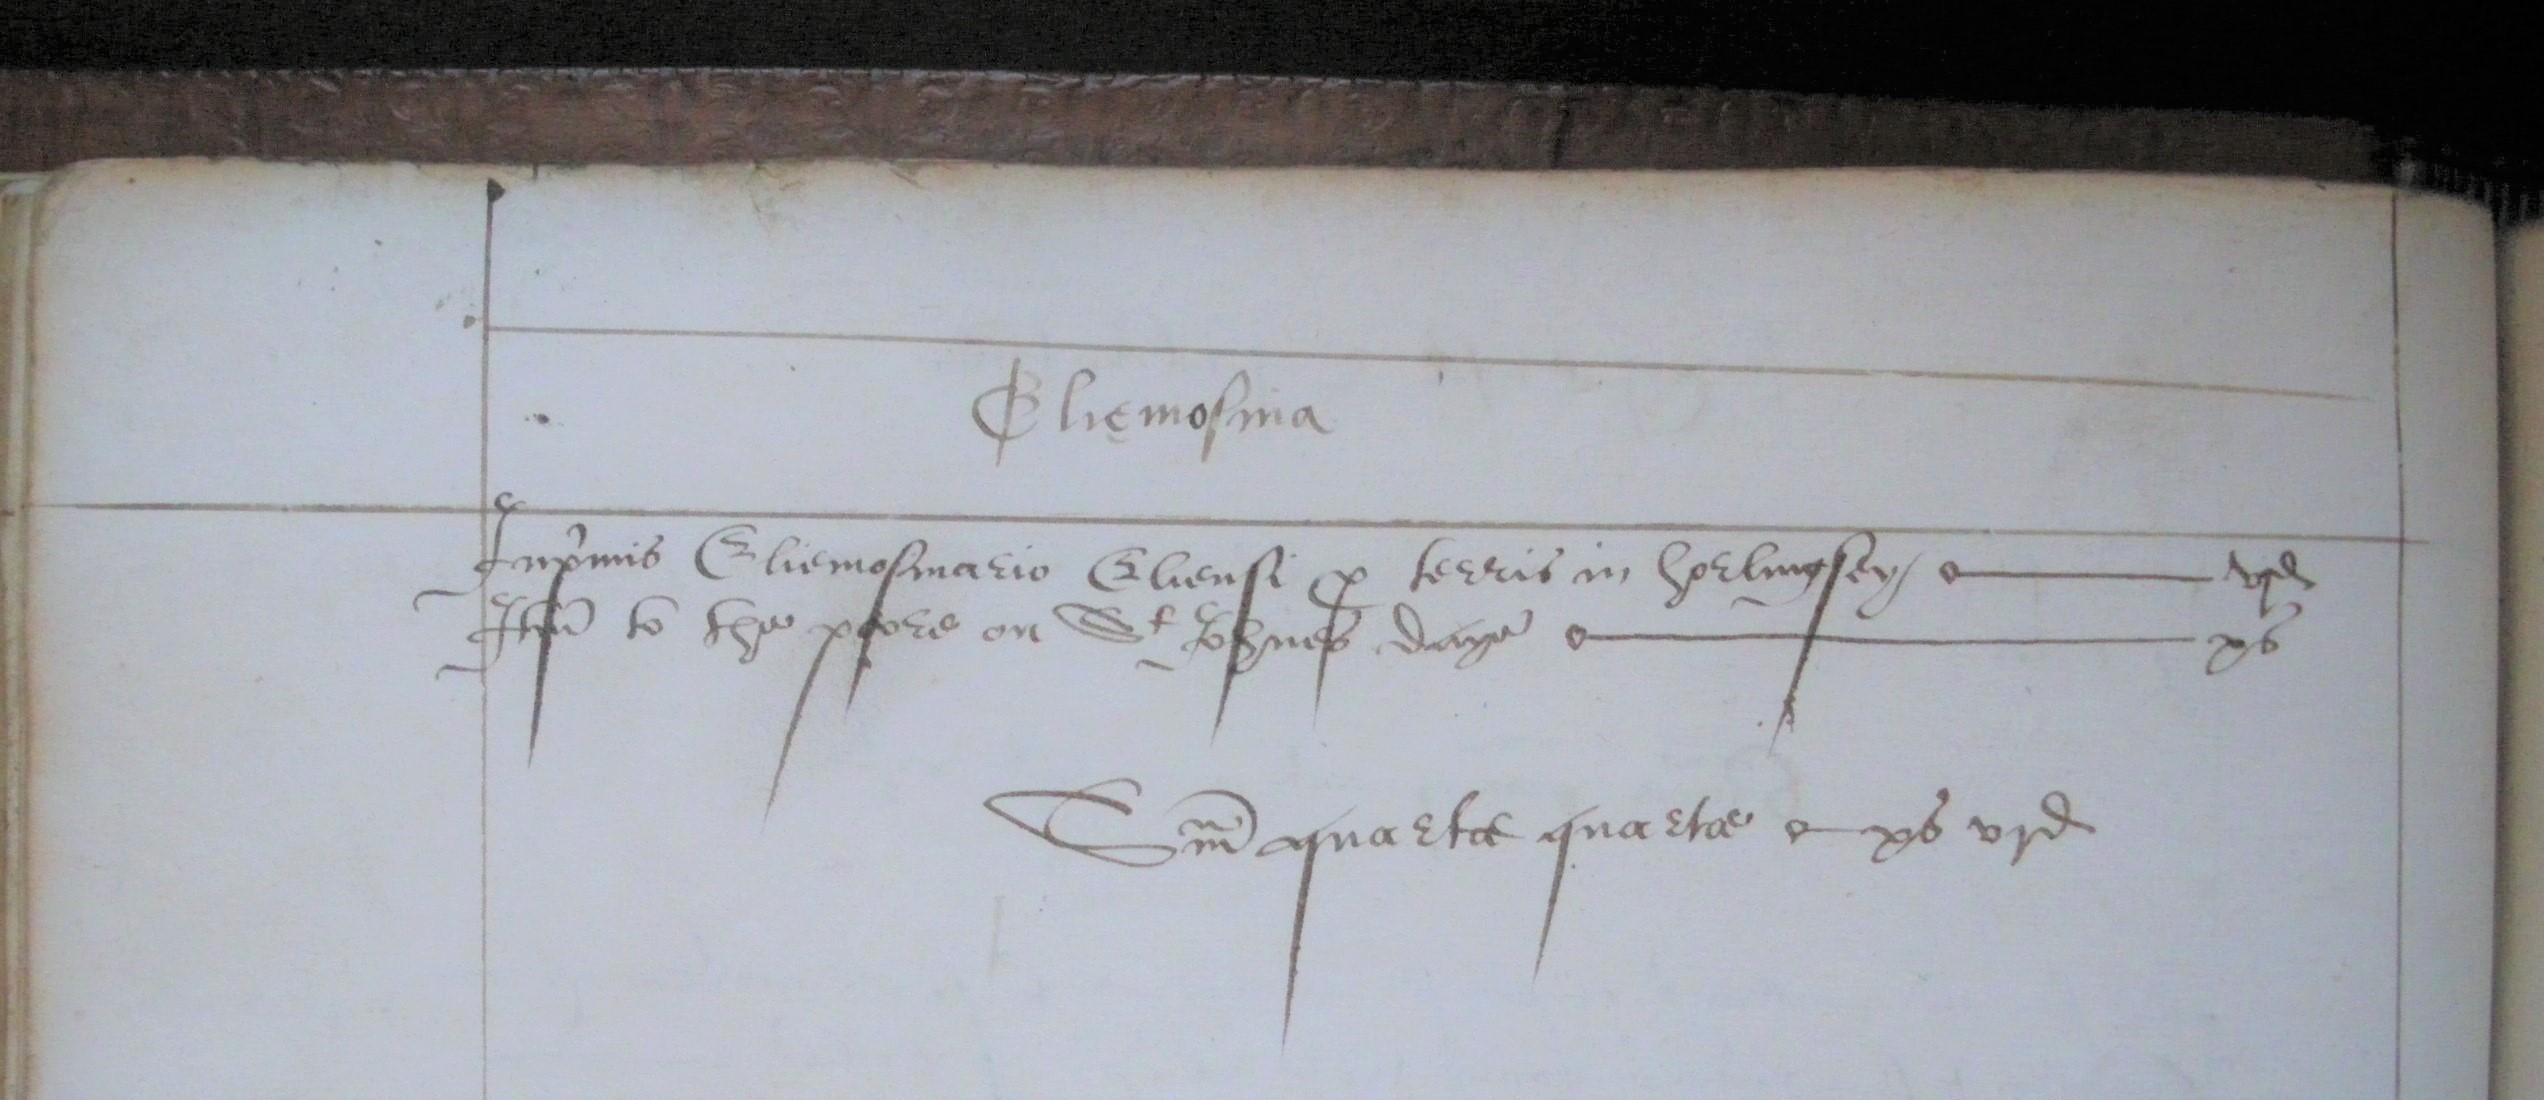 Elięmosina
Inprimis Eliemosinario Eliensi p terris in horlingsey vjd
Itm to the poore on St Johnes daye xs
Sm quartæ quartæ xs vjd